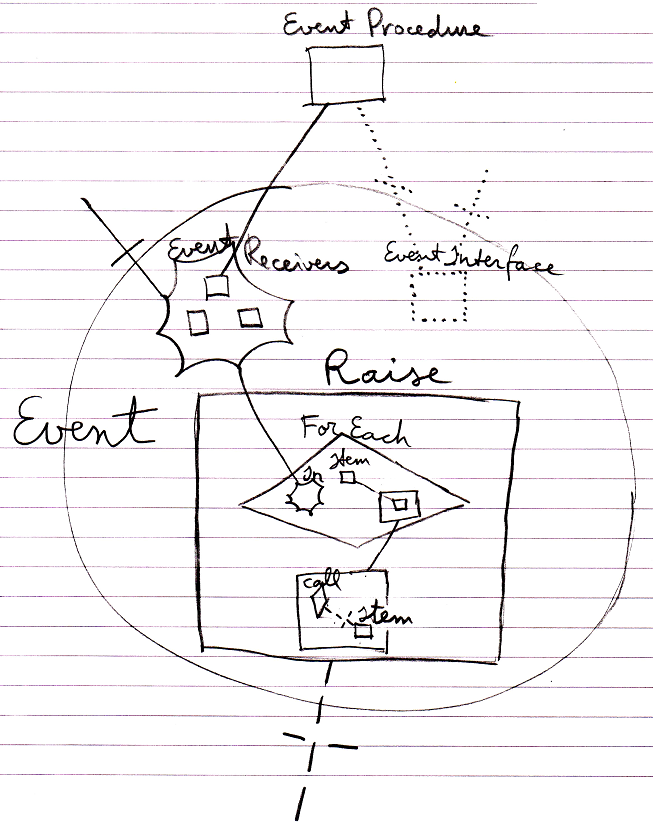 Event Procedure
Event Receivers
Event Interface
Raise
Event
For Each
In
Item
Call
Item